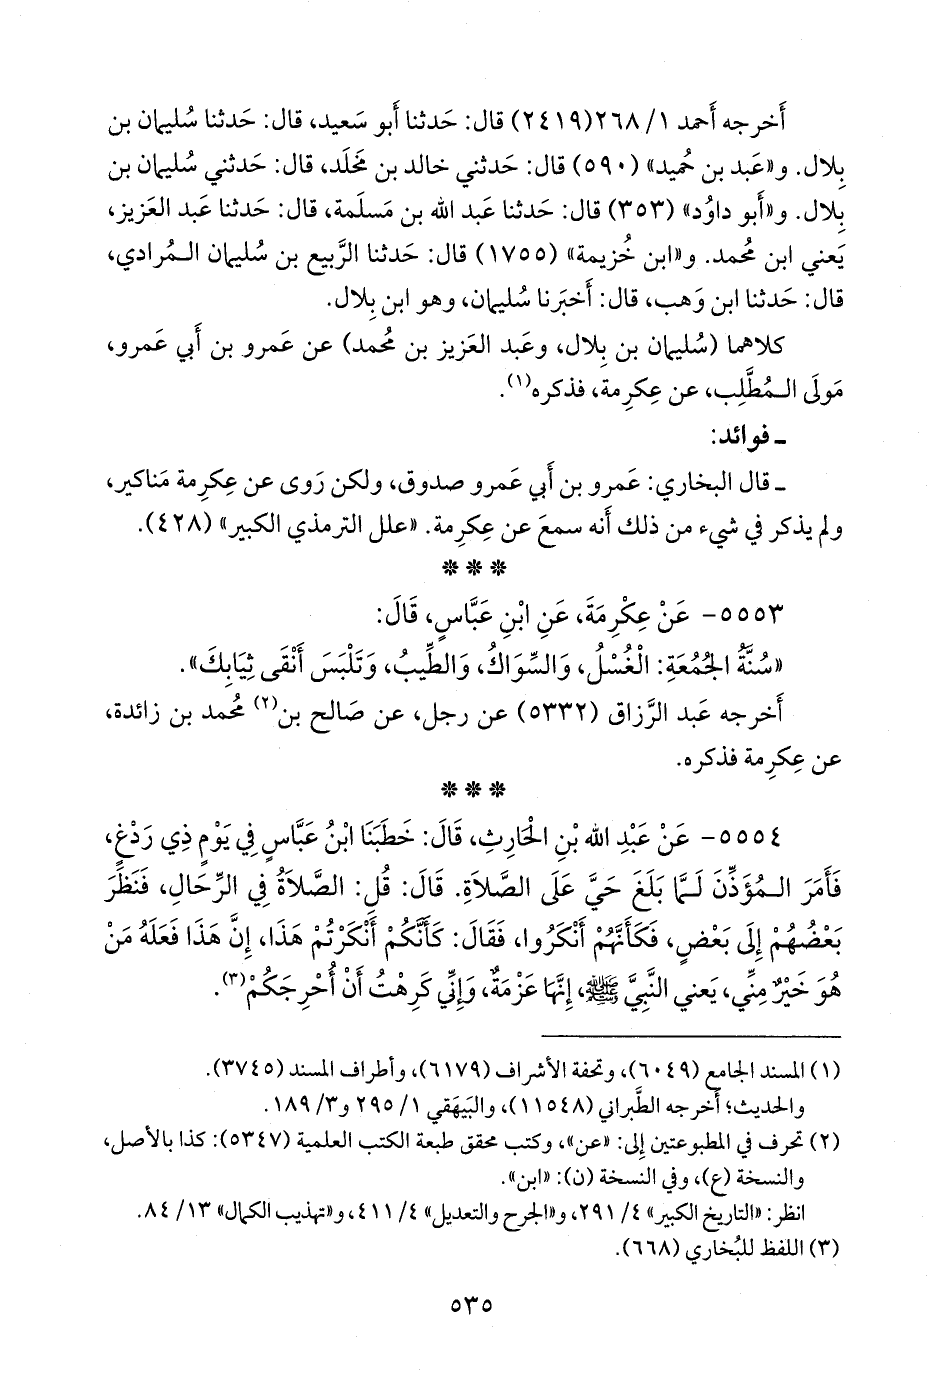 أَخرجه أَحمد ١/ ٢٦٨(٢٤١٩) قال: حَدثنا أَبو سَعيد، قال: حَدثنا سُليمان بن
بِلال. و«عَبد بن حُميد» (٥٩٠) قال: حَدثني خالد بن مَخلَد، قال: حَدثني سُليمان بن
بِلال. و«أَبو داوُد» (٣٥٣) قال: حَدثنا عَبد الله بن مَسلَمة، قال: حَدثنا عَبد العَزيز،
يَعني ابن مُحمد. و«ابن خُزيمة» (١٧٥٥) قال: حَدثنا الرَّبيع بن سُليمان الـمُرادي،
قال: حَدثنا ابن وَهب، قال: أَخبَرنا سُليمان، وهو ابن بِلال.
كلاهما (سُليمان بن بِلال، وعَبد العَزيز بن مُحمد) عن عَمرو بن أَبي عَمرو،
مَولَى الـمُطَّلِب، عن عِكرِمة، فذكره(١).
ـ فوائد:
ـ قال البخاري: عَمرو بن أَبي عَمرو صدوق، ولكن رَوى عن عِكرِمة مَناكير،
ولم يذكر في شيء من ذلك أَنه سمعَ عن عِكرِمة. «علل الترمذي الكبير» (٤٢٨).
* * *
٥٥٥٣- عَنْ عِكْرِمَةَ، عَنِ ابْنِ عَبَّاسٍ، قَالَ:
«سُنَّةُ الجُمُعَةِ: الْغُسْلُ، وَالسِّوَاكُ، وَالطِّيبُ، وَتَلْبَسَ أَنْقَى ثِيَابِكَ».
أَخرجه عَبد الرَّزاق (٥٣٣٢) عن رجل، عن صَالح بن(٢) مُحمد بن زائدة،
عن عِكرِمة فذكره.
* * *
٥٥٥٤- عَنْ عَبْدِ الله بْنِ الْحَارِثِ، قَالَ: خَطَبَنَا ابْنُ عَبَّاسٍ فِي يَوْمٍ ذِي رَدْغٍ،
فَأَمَرَ الـمُؤَذِّنَ لَـمَّا بَلَغَ حَيَّ عَلَى الصَّلاَةِ. قَالَ: قُلِ: الصَّلاَةُ فِي الرِّحَالِ، فَنَظَرَ
بَعْضُهُمْ إِلَى بَعْضٍ، فَكَأَنَّهُمْ أَنْكَرُوا، فَقَالَ: كَأَنَّكُمْ أَنْكَرْتُمْ هَذَا، إِنَّ هَذَا فَعَلَهُ مَنْ
هُوَ خَيْرٌ مِنِّي، يَعني النَّبِيَّ ﷺ، إِنَّهَا عَزْمَةٌ، وَإِنِّي كَرِهْتُ أَنْ أُحْرِجَكُمْ(٣).
(١) المسند الجامع (٦٠٤٩)، وتحفة الأشراف (٦١٧٩)، وأطراف المسند (٣٧٤٥).
والحديث؛ أَخرجه الطَّبراني (١١٥٤٨)، والبَيهَقي ١/ ٢٩٥ و٣/ ١٨٩.
(٢) تحرف في المطبوعتين إلى: «عن»، وكتب محقق طبعة الكتب العلمية (٥٣٤٧): كذا بالأصل،
والنسخة (ع)، وفي النسخة (ن): «ابن».
انظر: «التاريخ الكبير» ٤/ ٢٩١، و«الجرح والتعديل» ٤/ ٤١١، و«تهذيب الكمال» ١٣/ ٨٤.
(٣) اللفظ للبُخاري (٦٦٨).
٥٣٥